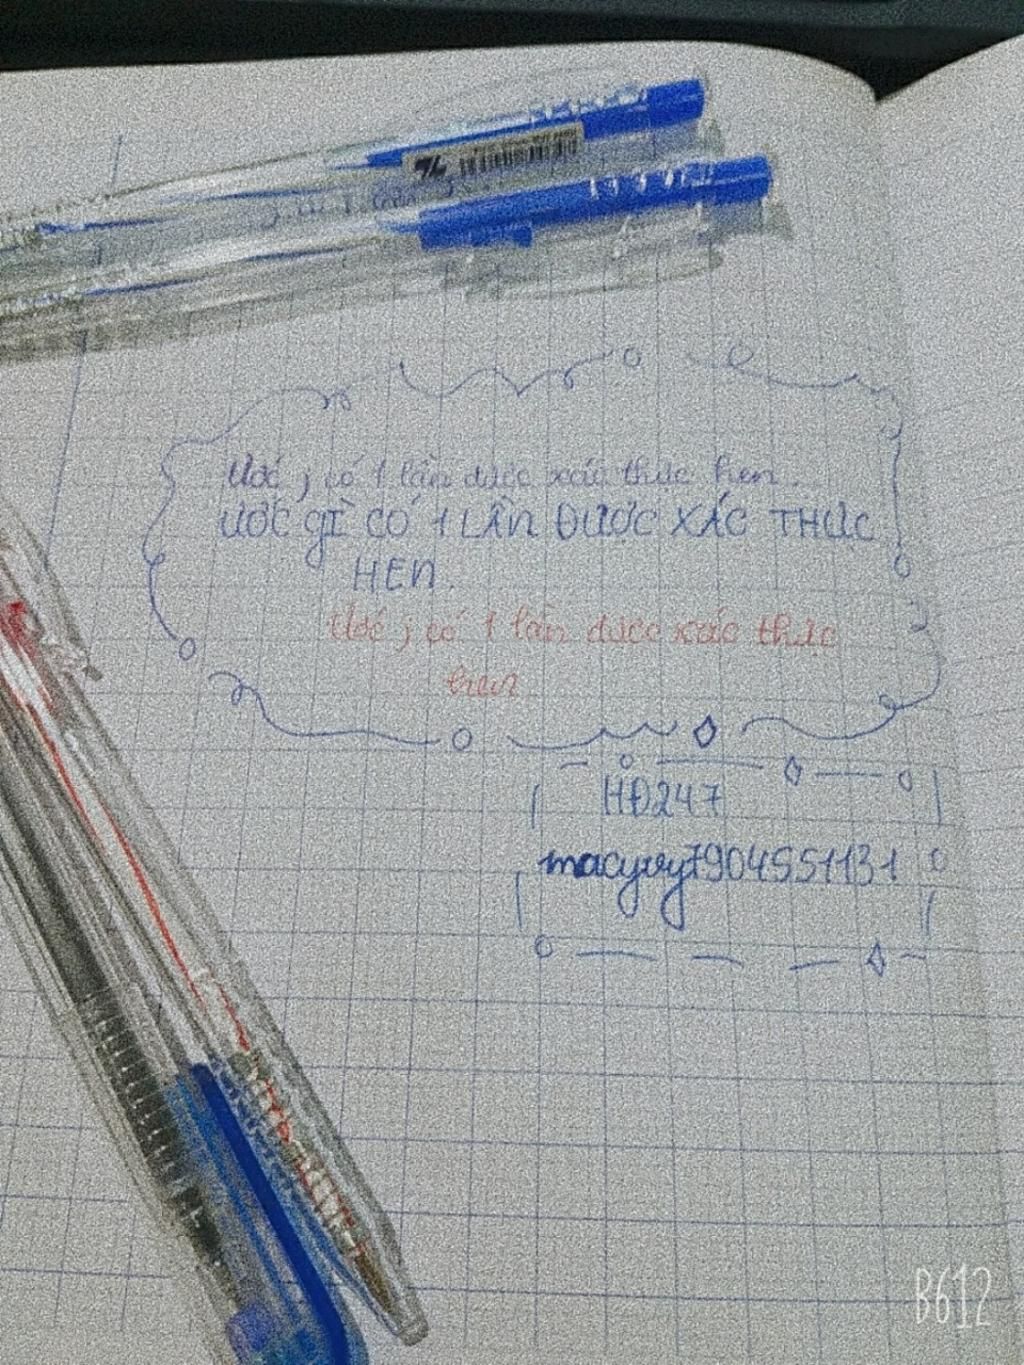 Ước j có 1 lần được xác thực hen.
ƯỚC gÌ CÓ 1 LẦN ĐƯỢC XÁC THỰC
HEN.
Ước j có 1 lần được xác thực
hen
HĐ247
macyvy7904551131
B612